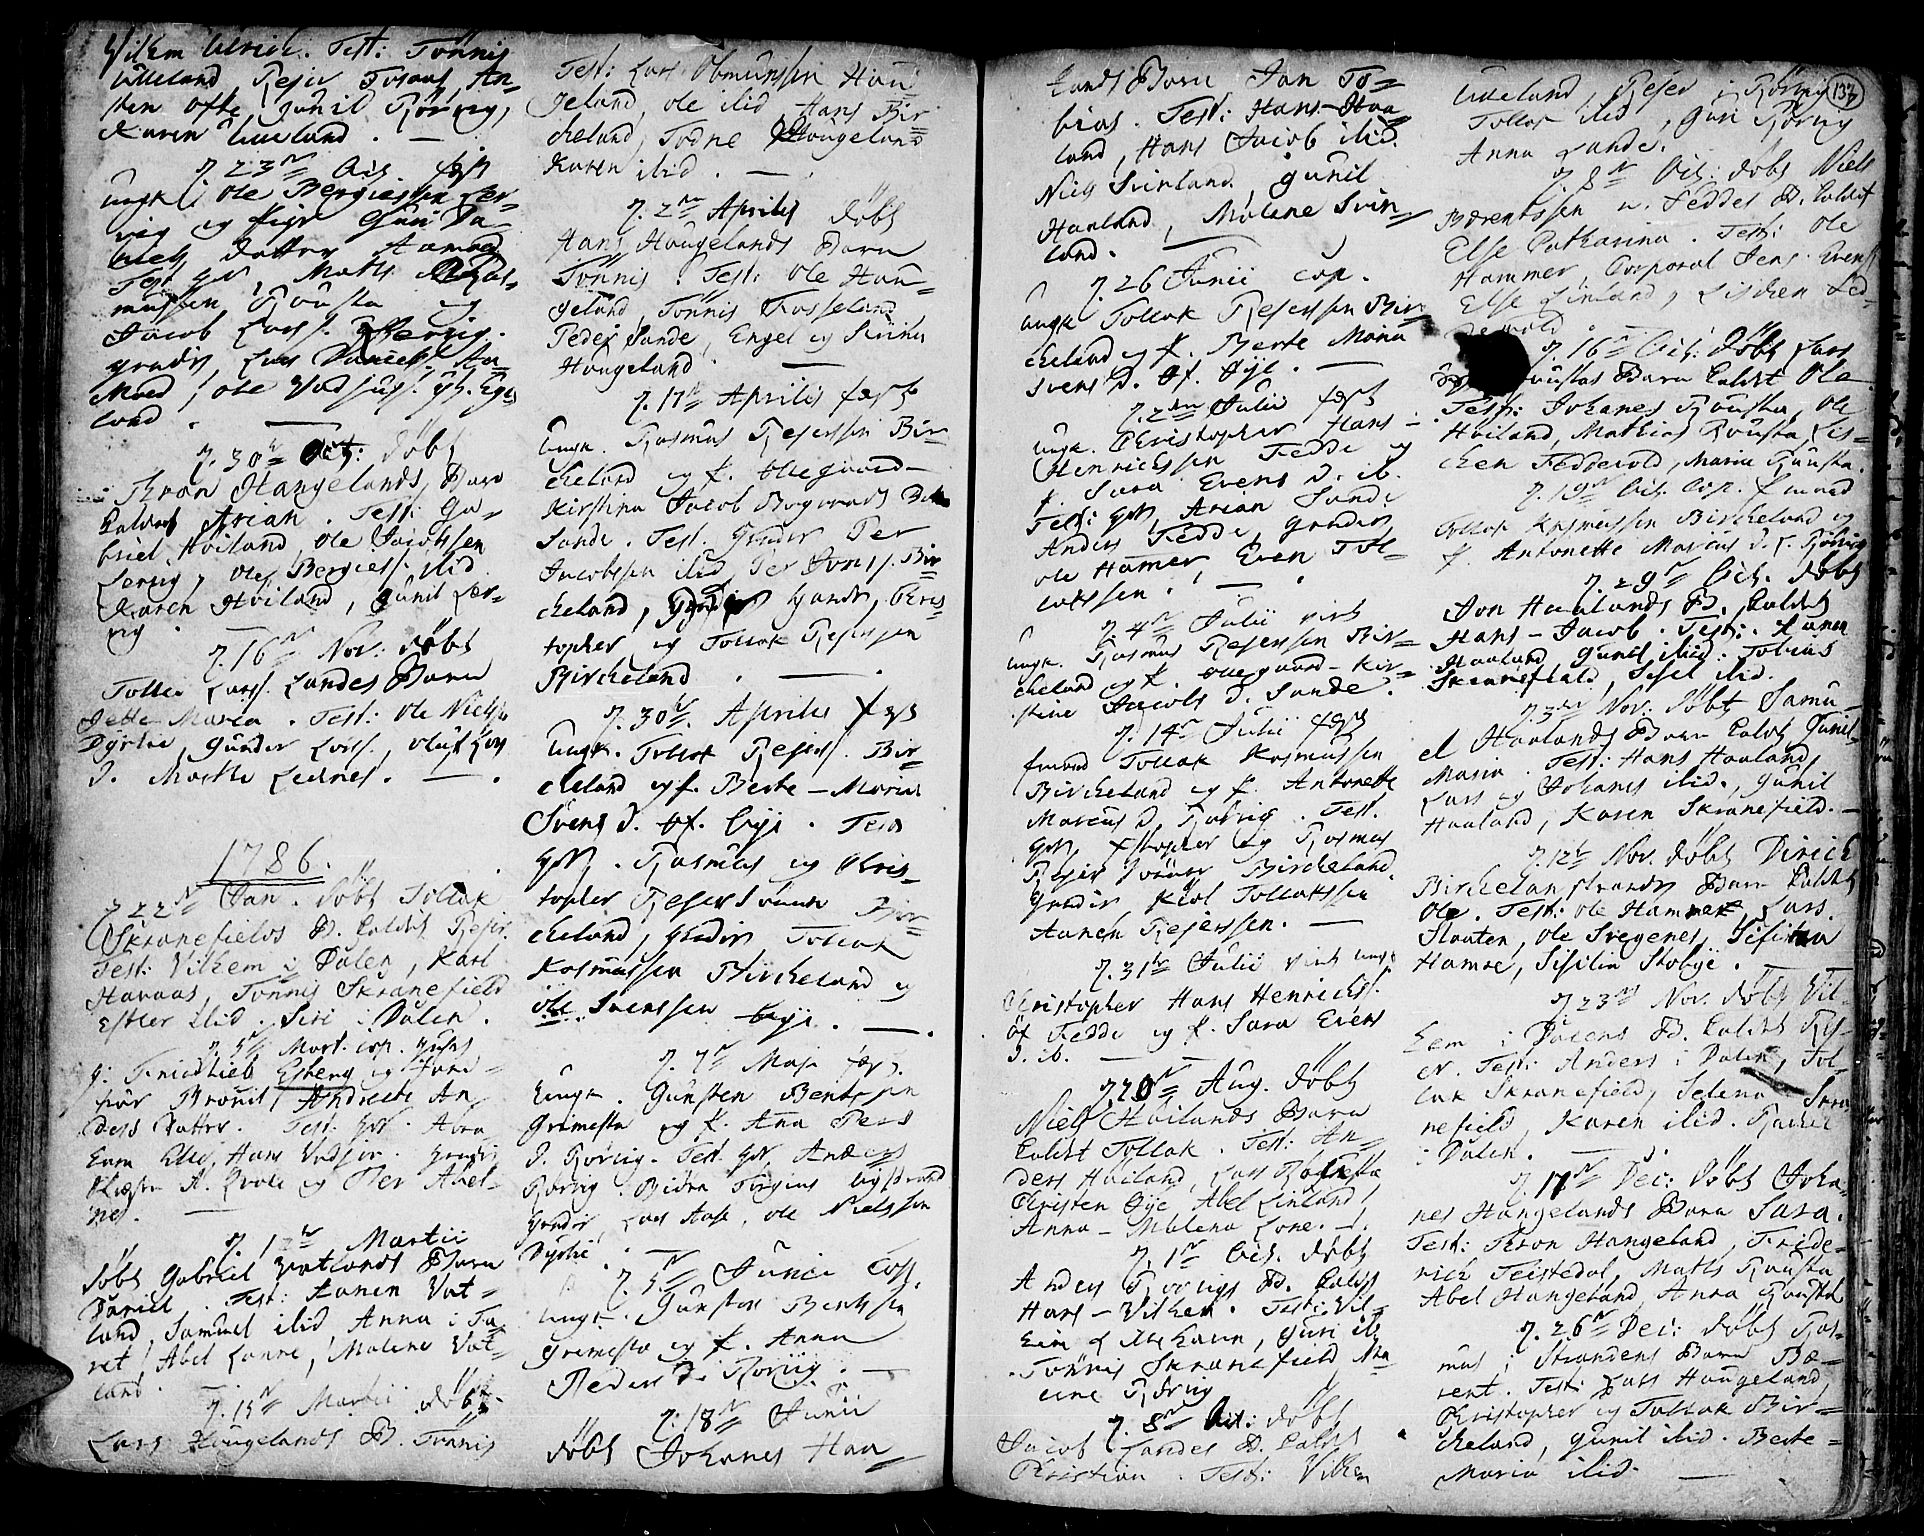 Vilhem Ulrich. Test: Tönnis
Uleland, Rejer Tosaas, An-
sten ofte, Gunild Rörvig,
Karen Uleland. —
D. 23de Oct. fæst
ungk. Ole Bergiessen Ler-
vig og Pige Guri Da-
niels Datter Aamod
Test: Mats Ras-
mussen Rousta og
Jacob Lars
Grændz, Lars Daniels. Aa-
mod, Ole
land. —
D. 30te Oct: döbt
Thron Hangelands Barn
kaldet Arian. Test: Ga-
briel Höiland, Ole Jacobsen
Lervig, Ole Bergies. ibid
Karen Höiland, Gunil Ler-
vig. —
D. 16de Nov: döbt
Tollei Lars. Landes Barn
Jette Maria. Test: Ole Niels.
Dyrlie, Gunder Lars., Oluf Lars
D. Marthe Lednes. — .
1786.
D. 22de Jan. döbt Tollak
Skranefields B. kaldet Rejer.
Test: Vilhem i Dalen, Karl
Haraas, Tönnis Skranefield
Esther ibid. Siri i Dalen.
D. 5te Mart. cop.
Friedlieb Esberg og Jom-
frör Andreete An-
ders Datter. Test: Abra-
ham Hans
og Per Abel-
nes. —
D. 12te Martii
döbt Gabriel Vatlands Barn
Daniel. Test: Karen Vat-
land, Samuel ibid Anna i Ja-
ret, Abel Lonne, Malene Vat-
land. —
D. 19de Martii döbt
Lars Hougelands B. Tönnis
Test: Lars Obmundssen Hou-
geland, Ole ibid Hans Bir-
cheland, Todne Hougeland
Karen ibid. —
D. 2den Aprilis döbt
Hans Hougelands Barn
Tönnis. Test: Ole Hou-
geland, Tönnis Fosseland
Peder Sande, Engel og Sirina
Hougeland. —
D. 17de Aprilis fæst
Ungk. Rasmus Rejerssen Bir-
cheland og P. Ollegaard-
Kirstina Jacob Bogvards Dat.
Sande. Test. Grædir Per
Jacobssen ibid, Per Jons. Bir-
cheland, Chris-
topher og Tollak Rejerssen
Bircheland. — .
D. 30te Aprilis fæst
Ungk. Tollak Rejers. Bir-
cheland og P. Berte-Maria
Svens D. af Öye. Test
Rasmus og Chris-
topher Rejers Sönner Bir-
cheland, Grædir, Tollak
Rasmussen Bircheland og
Ole Svenssen Öye. — .
D. 7de Maji fæst.
Ungk. Gunsten Bentssen
Grimesta og P. Ana Pers
D. Rörvig. Test. Anders
Rörvig. Biörn Torgius Bögstrand
Grædir Lars Aase, Ole Nielssen
Dyrlie. —
D. 5te Junii Cop.
Ungk. Gunsten Bentssen
Grimesta og P. Anna
Peders D. Rörvig. —
D. 18de Junii
döbt Johanes Haa-
lands Barn Jan To-
bias. Test: Hans Haa-
land, Hans Jacob ibid.
Niels Svinland, Gunil
Haaland, Malene Svin-
land.
D. 26 Junii cop.
Ungk. Tollak Rejerssen Bir-
cheland og P. Berte Maria
Svens D. af Öye. —
D. 2den Julii fæst
Ungk. Christopher Hans-
Henrichssen Fedde og
P. Sara Evens D. ib.
Test: Arian Sande
Anders Fedde, Grædir,
Ole Hamer, Even Tol-
lakssen. — .
D. 4de Julii viet
Ungk. Rasmus Rejerssen Bir-
cheland og P. Ollegaard-Kir-
stine Jacobs D. Sande.
D. 14de Julii fæst
Enkemd Tollak Rasmussen
Bircheland og P. Antonette
Marcus D. Rörvig. Test.
Christopher og Rasmus
Rejers Sönner Bircheland,
Grædir Kiöl Tollakssen
Aanen Rejerssen. —
D. 31te Julii viet Ungk.
Christopher Hans Henrichs.
af Fedde og P. Sara Evens
D. ib. —
D. 20de Aug. döbt
Niels Höilands Barn
kaldet Tollak. Test: An-
ders Höiland, Lars Rousta
Christen Öye Abel Linland,
Anna-Malena Lone. —
D. 1te Oct. döbt
Anders Rörvigs B. kaldet
Hans-Vilhem. Test: Vil-
hem Guri ib.
Tönnis Skranefield
Rörvig
D. 8de Oct: döbt
Jacob Landes B. kaldet
Christian. Test: Vilhem
137
Uleland, Rejer i Rörvig
Tollak ibid, Guri Rörvig
Anna Lande.
D. 8de Oct: döbt Niels
Bærentssen Feddes B. kaldet
Else Catharina. Test: Ole
Hammer, Corporal Jens Evens
Else Linland, Lisken Fed-
dewold. —
D. 16de Oct: döbt Lars
Roustas Barn kaldet Ole.
Test: Johanes Rousta, Ole
Höiland, Mathias Rousta, Lis-
chen Feddewold, Maria Rousta.
D. 19de Oct. Cop. Enkemd
Tollak Rasmussen Bircheland og
P. Antonette Marcus D. Rörvig
D. 29de Oct. döbt
Jon Haalands B. kaldet
Hans-Jacob. Test: Aanen
Haaland, Gunil ibid. Tobias
Skranefield, Sisel ibid.
D. 3die Nov: döbt Samu-
el Haalands Barn kaldet Gunil-
Maria. Test: Hans Haaland
Lars og Johanes ibid. Gunil
Haaland, Karen Skranefield. —
D. 12te Nov. döbt Dirich
Birchelandstrands Barn kaldet
Ole. Test: Ole Hammer, Lars
Slaaten, Ole Svegenes, Sisilia
Hamre, Sisilia Stolye. —
D. 23de Nov. döbt Vil-
hem i Dalens B. kaldet Rej-
er. Test: Anders i Dalen, Tol-
lak Skranefield, Selena Skra-
nefield, Karen ibid. Rachel
i Dalen. — .
D. 17de Dec: döbt Joha-
nes Hangelands Barn Sara.
Test: Thron Hangeland, Fride-
rich Teistedal, Maths Rousta
Abel Hangeland, Anna Rousta
D. 26de Dec: döbt Ras-
mus i Strandens Barn Bæ-
rent. Test. Lars Hougeland,
Christopher og Tollak Bir-
cheland, Gunil ibid. Berte-
Maria ibid. —